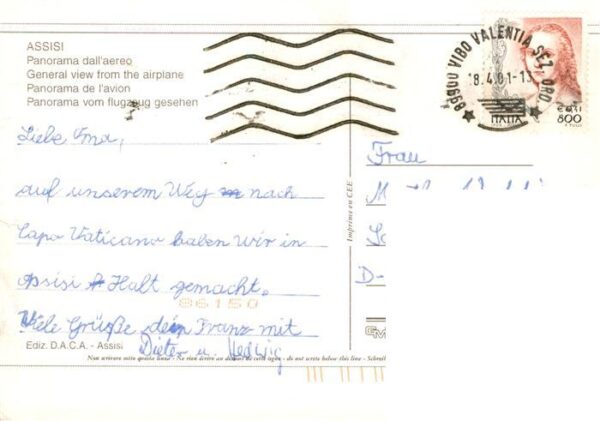 ASSISI
Panorama dall'aereo
General view from the airplane
Panorama de l'avion
Panorama vom flugzeug gesehen
89900 VIBO VALENTIA SEZ. ORD.
8.4.01-13
ITALIA
€ 0,41
800
Liebe Oma,
auf unserem Weg nach
Capo Vaticano haben wir in
Assisi Halt gemacht.
Viele Grüße dein Franz mit
Dieter u. Hedwig
Frau
D-
86150
Imprimé en CEE
Ediz. D.A.C.A. - Assisi
Non scrivere sotto questa linea - Ne rien écrire au dessous de cette ligne - do not write below this line - Schreib